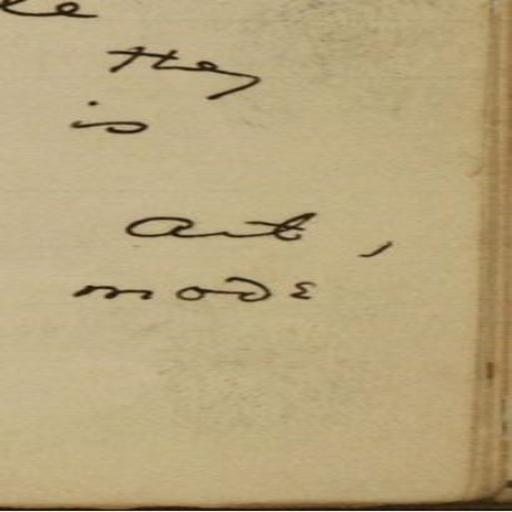 le
they
is
art,
mode